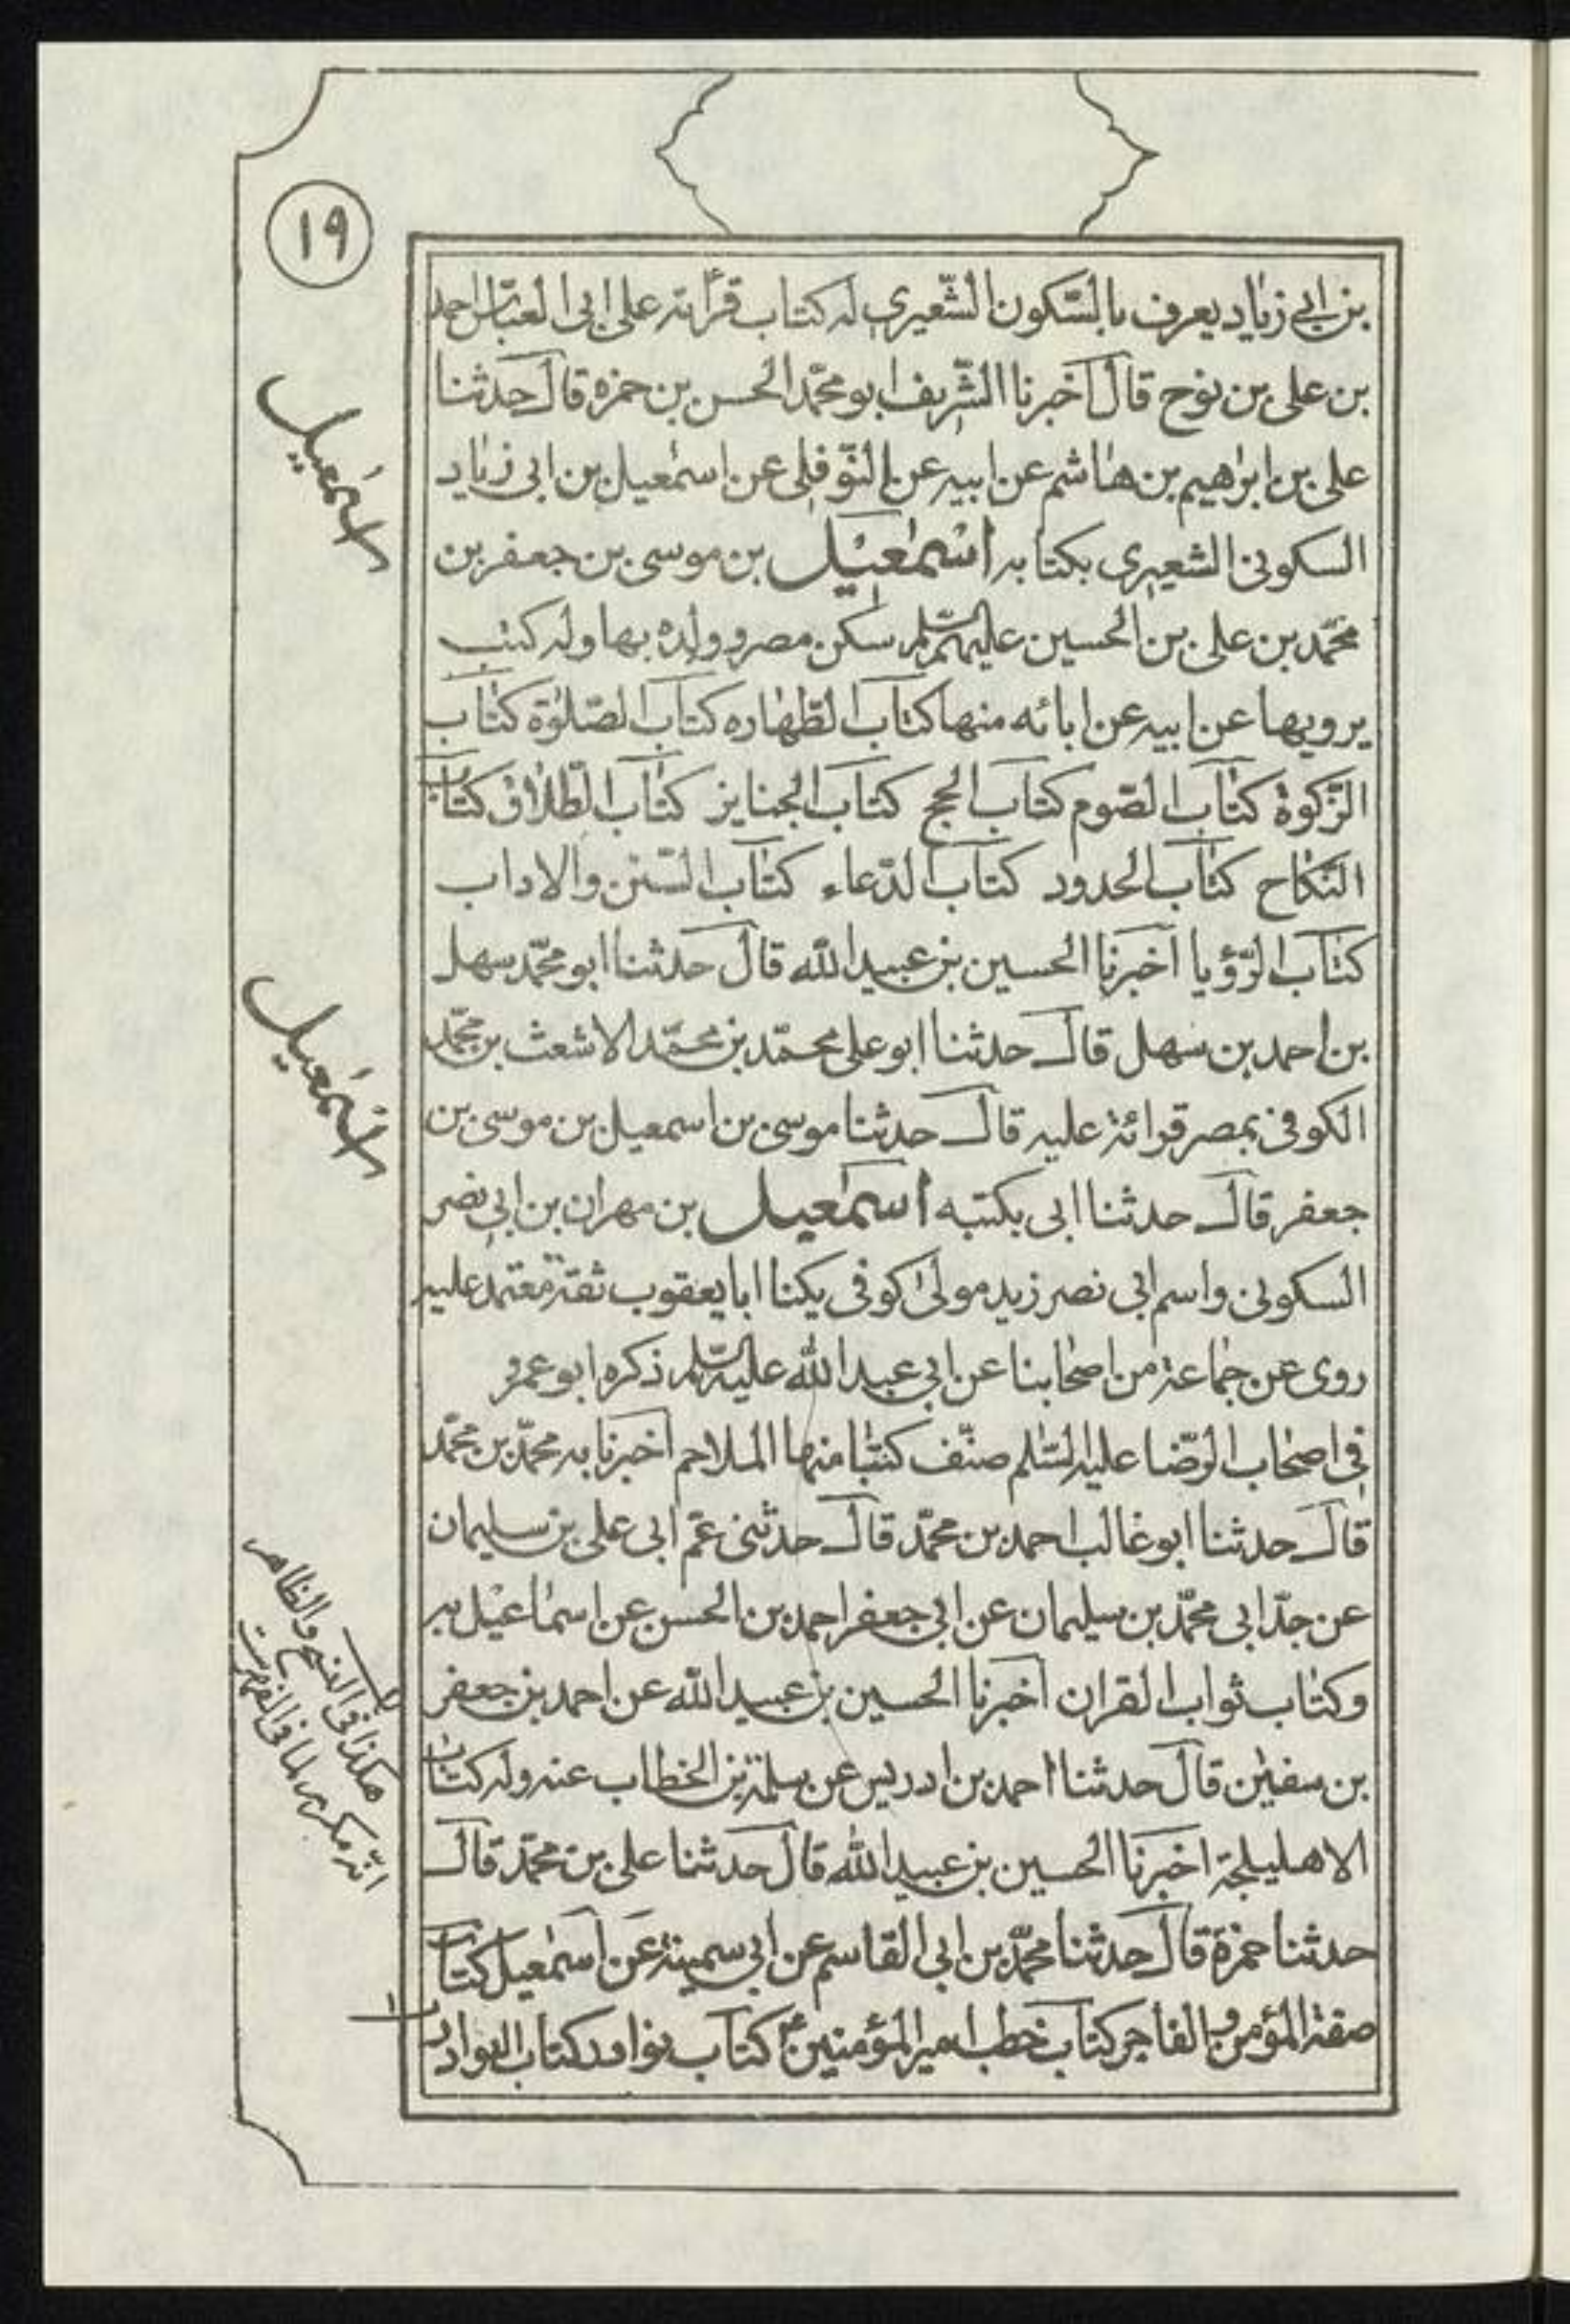 ١٩
بن ابي زياد يعرف بالسّكون الشّعيري له كتاب قرأته على ابى العبّاس احمد
بن على بن نوح قال اخبرنا الشّريف ابو محمّد الحسن بن حمزه قال حدثنا
على بن ابراهيم بن هاشم عن ابيه عن النّوفلى عن اسمعيل بن ابى زياد
السكونى الشعيرى بكتابه اسْمٰعيل بن موسى بن جعفر بن
محمّد بن على بن الحسين عليهم السّلم سكن مصر وولده بها وله كتب
يرويها عن ابيه عن ابائه منها كتاب الطّهاره كتاب الصّلوة كتاب
الزّكوة كتاب الصّوم كتاب الحج كتاب الجنايز كتاب الطّلاق كتاب
النّكاح كتاب الحدود كتاب الدّعاء كتاب السّنن والاداب
كتاب الرّؤيا اخبرنا الحسين بن عبيد الله قال حدثنا ابو محمّد سهل
بن احمد بن سهل قال حدثنا ابو على محمّد بن محمّد الاشعث بن محمّد
الكوفى بمصر قرائة عليه قال حدثنا موسى بن اسمعيل بن موسى بن
جعفر قال حدثنا ابى بكتبه اسمٰعيل بن مهران بن ابي نصر
السكونى واسم ابى نصر زيد مولى كوفى يكنا ابا يعقوب ثقة معتمد عليه
روى عن جماعة من اصحابنا عن ابي عبد الله عليه السّلم ذكره ابو عمرو
في اصحاب الرّضا عليه السّلم صنّف كتبًا منها الملاحم اخبرنا به محمّد بن محمّد
قال حدثنا ابو غالب احمد بن محمّد قال حدثنى عمّ ابى على بن سليمان
عن جدّ ابى محمّد بن سليمان عن ابي جعفر احمد بن الحسن عن اسماعيل به
وكتاب ثواب القران اخبرنا الحسين بن عبيد الله عن احمد بن جعفر
بن سفين قال حدثنا احمد بن ادريس عن سلمة بن الخطاب عنه وله كتاب
الاهليلجة اخبرنا الحسين بن عبيد الله قال حدثنا على بن محمّد قال
حدثنا حمزة قال حدثنا محمّد بن ابى القاسم عن ابي سمينة عن اسمعيل كتاب
صفة المؤمن والفاجر كتاب خطب امير المؤمنين ع كتاب نوادر كتاب النوادر
اسمٰعيل
اسمٰعيل
هكذا فى النسخ والظاهر
انّه مكرر لما فى الفهرست